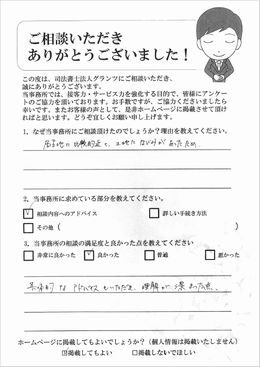 ご相談いただき
ありがとうございました！
この度は、司法書士法人グランツにご相談いただき、
誠にありがとうございます。
当事務所では、接客力・サービス力を強化する目的で、皆様にアンケー
トのご協力を頂いております。お手数ですが、ご協力くださいましたら
幸いです。またお客様の声として、是非ホームページに掲載させて頂け
ればと思います。どうぞ宜しくお願い申し上げます。
1. なぜ当事務所にご相談頂けたのでしょうか？理由を教えてください。
比較的近く、
2. 当事務所に求めている部分を教えてください。
相談内容へのアドバイス
詳しい手続き方法
その他（ ）
3. 当事務所の相談の満足度と良かった点を教えてください
非常に良かった
良かった
普通
悪かった
具体的な アドバイスをいただき、理解が深まった点。
ホームページに掲載してもよいでしょうか？（個人情報は掲載いたしません）
掲載してもよい
掲載しないでほしい